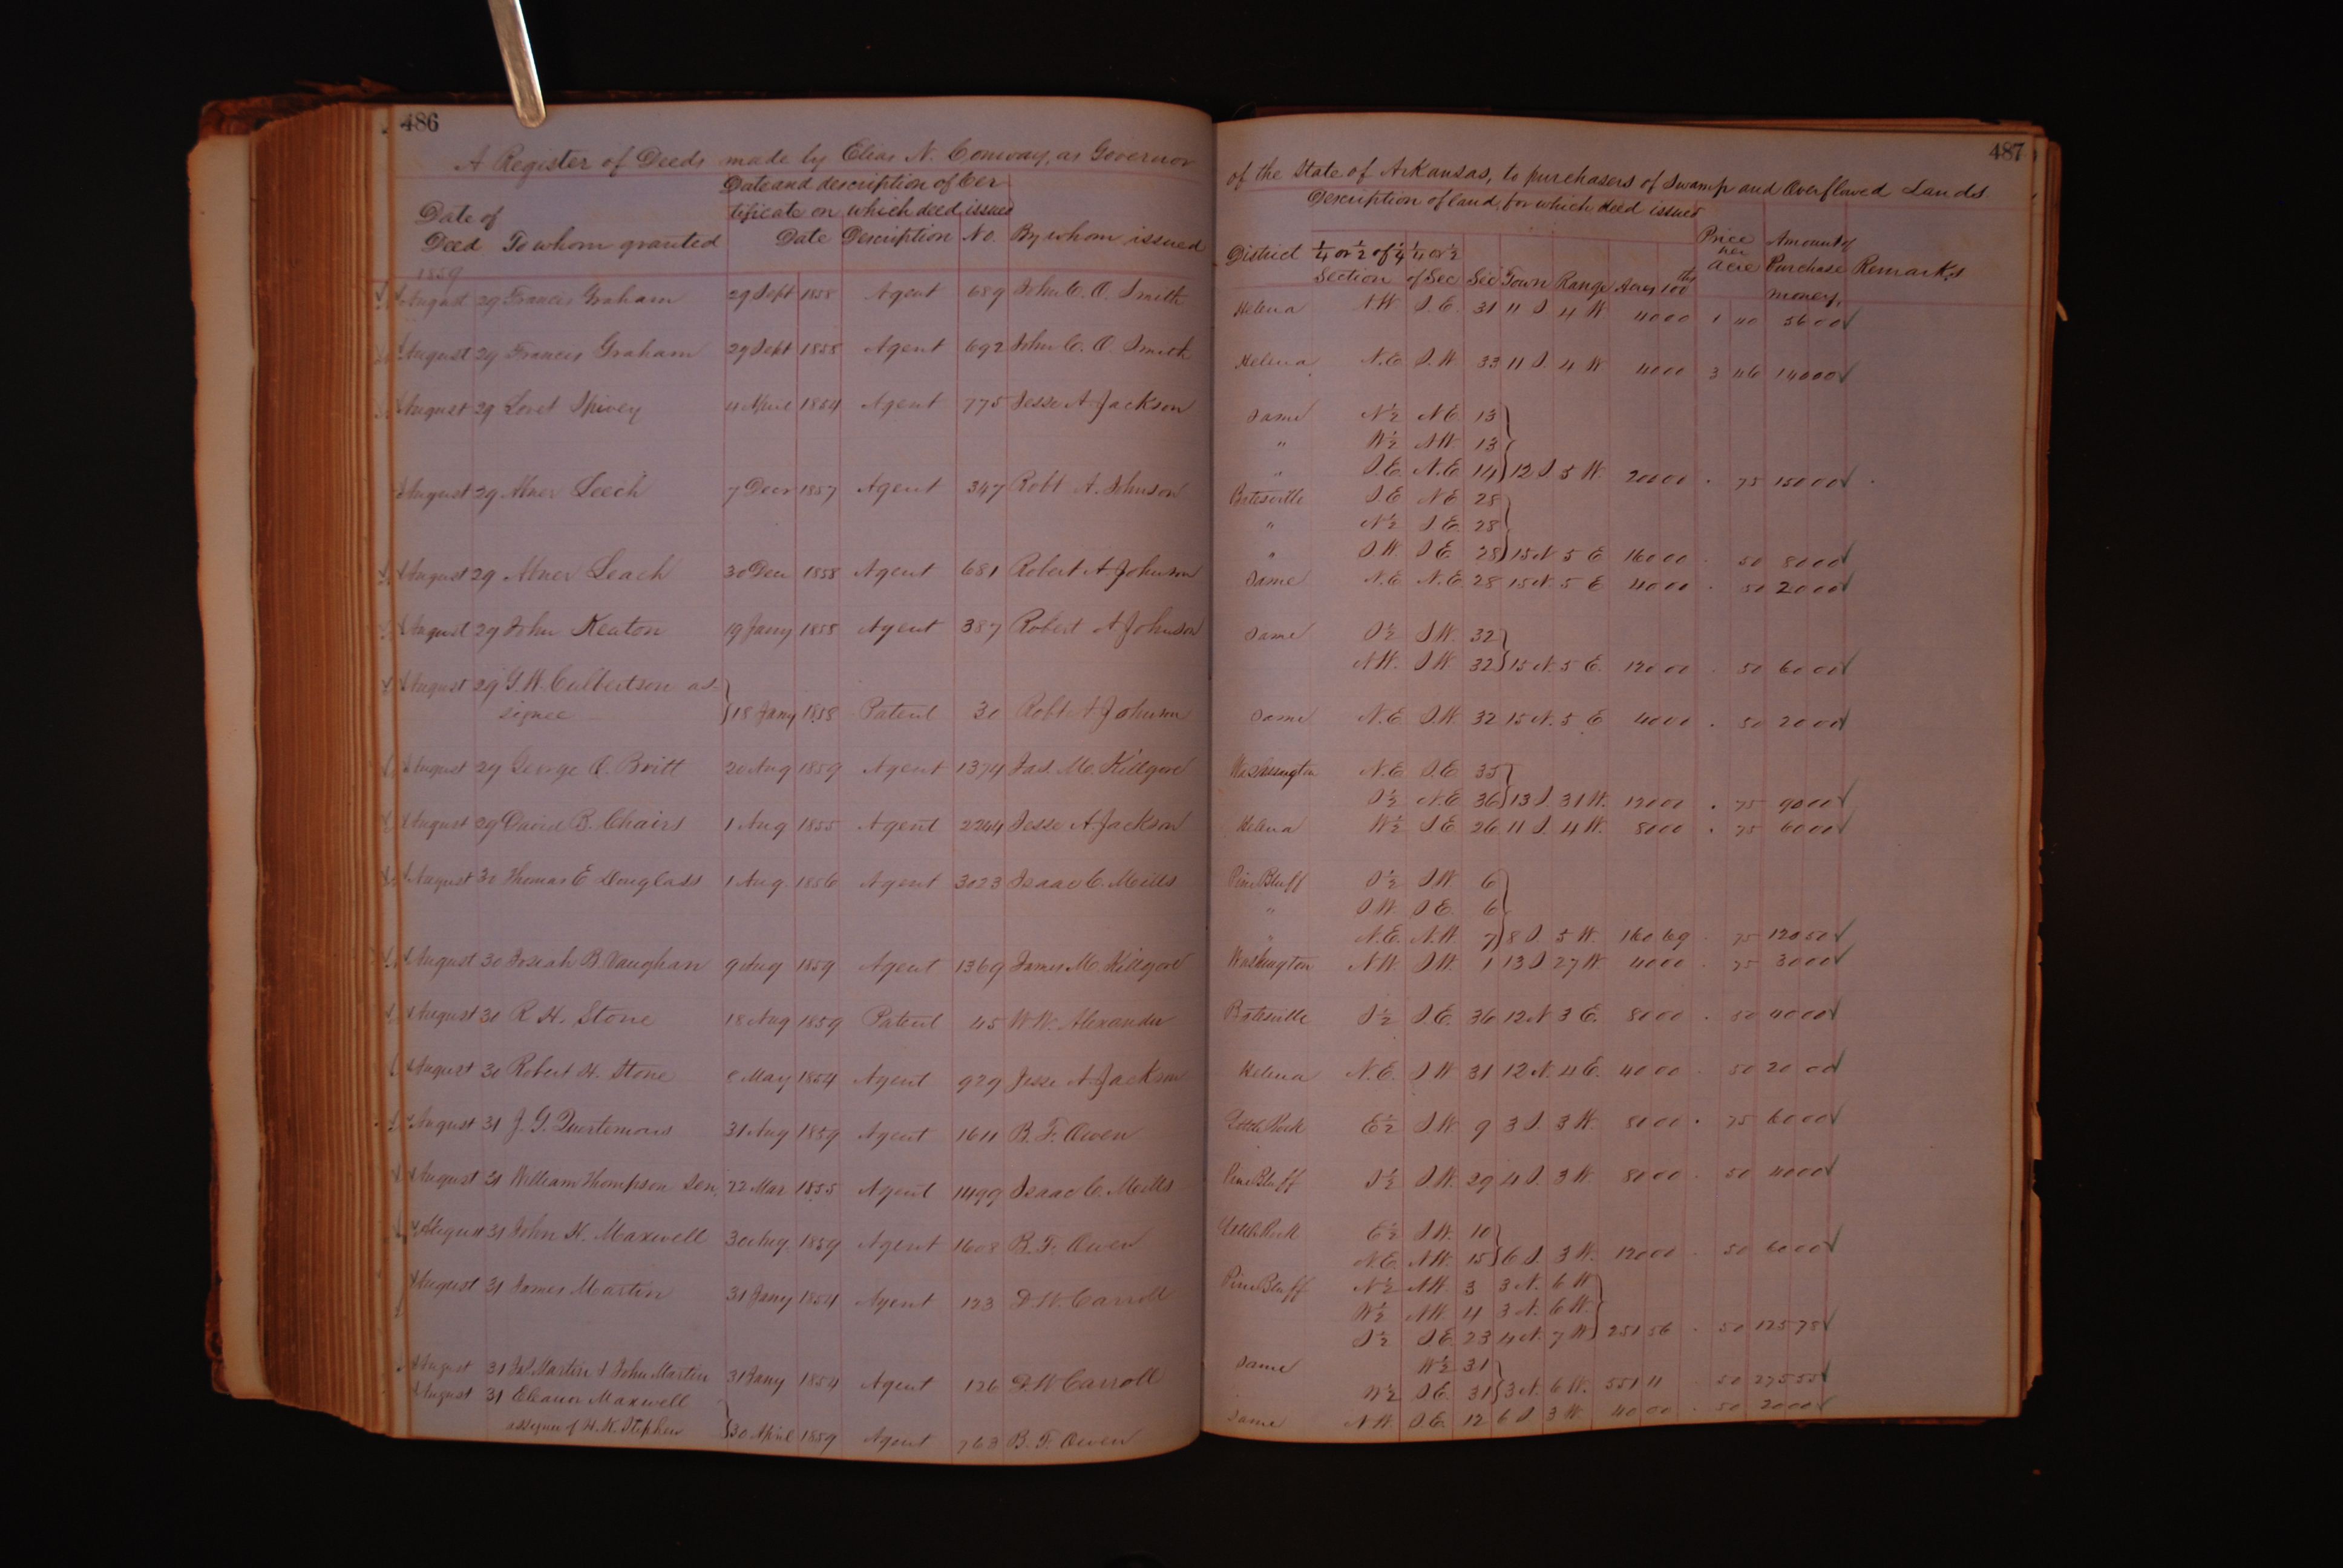 486
A Register of Deeds made by Elias N. Conway, as Governor
Date and description of Cer
tificate on which deed issued
Date of
Deed To whom granted Date Description No. By whom issued
1859
August 29 Francis Graham 29 Sept 1858 Agent 689 John C. O. Smith
August 29 Francis Graham 29 Sept 1858 Agent 692 John C. O. Smith
August 29 Loret Spivey 4 April 1854 Agent 775 Jesse A Jackson
August 29 Abner Leech 7 Decr 1857 Agent 347 Robt A. Johnson
August 29 Abner Leach 30 Dec 1858 Agent 681 Robert A Johnson
August 29 John Keaton 19 Jany 1858 Agent 387 Robert A Johnson
August 29 G. W. Culbertson as-
signee 18 Jany 1858 Patent 30 Robt A Johnson
August 29 George O. Britt 20 Aug 1859 Agent 1374 Jas. M. Killgore
August 29 David B. Chairs 1 Aug 1855 Agent 2244 Jesse A Jackson
August 30 Thomas E Douglass 1 Aug 1856 Agent 3023 Isaac C. Mills
August 30 Josiah B. Vaughan 9 Aug 1859 Agent 1369 James M. Killgore
August 30 R. H. Stone 18 Aug 1859 Patent 45 W. W. Alexander
August 30 Robert H. Stone 8 May 1854 Agent 929 Jesse A Jackson
August 31 J. G. Quertemous 31 Aug 1859 Agent 1611 B. F. Owen
August 31 William Thompson Sen. 22 Mar 1855 Agent 1499 Isaac C. Mills
August 31 John H. Maxwell 30 Aug. 1859 Agent 1608 B. F. Owen
August 31 James Martin 31 Jany 1854 Agent 123 D. W. Carroll
August 31 Js. Martin & John Martin 31 Jany 1854 Agent 126 D. W Carroll
August 31 Eleanor Maxwell
assignee of H. K. Stephen 30 April 1859 Agent 763 B. F. Owen
487
of the State of Arkansas, to purchasers of Swamp and Overflowed Lands
Description of land, for which deed issued
District ¼ or ½ of ¼ Section ¼ or ½ of Sec Sec Town Range Acres 100ths Price per Acre Amount of Purchase money. Remarks
Helena N.W S.E. 31 11 S 4 W 40 00 1 40 56 00
Helena N.E S.W. 33 11 S. 4 W 40 00 3 46 140 00
Same N½ N.E. 13
" W½ N.W. 13
" S.E. N.E 14 12 S 5 W. 200 00 . 75 150 00
Batesville S.E N.E 28
" N½ S.E. 28
" S.W. S.E. 28 15 N 5 E 160 00 . 50 80 00
Same N.E N.E. 28 15 N. 5 E 40 00 . 50 20 00
Same S½ S.W. 32
N.W. S.W 32 15 N. 5 E. 120 00 . 50 60 00
Same N.E S.W. 32 15 N. 5 E 40 00 . 50 20 00
Washington N.E S.E 35
S½ N.E 36 13 S 31 W. 120 00 . 75 90 00
Helena W½ S.E 26 11 S. 4 W. 80 00 . 75 60 00
Pine Bluff S½ S.W 6
" S.W. S.E. 6
" N.E. N.W. 7 8 S. 5 W. 160 69 . 75 120 50
Washington N.W. S.W. 1 13 S 27 W. 40 00 . 75 30 00
Batesville S½ S.E. 36 12 N 3 E. 80 00 . 50 40 00
Helena N.E. S.W 31 12 N. 4 E. 40 00 . 50 20 00
Little Rock E½ S.W. 9 3 S. 3 W. 80 00 . 75 60 00
Pine Bluff S½ S.W. 29 4 S. 3 W 80 00 . 50 40 00
Little Rock E½ S.W. 10
N.E. N.W. 15 6 S. 3 W. 120 00 . 50 60 00
Pine Bluff N½ N.W. 3 3 N. 6 W
W½ N.W. 4 3 N. 6 W.
S½ S.E. 23 4 N. 7 W 251 56 . 50 125 78
Same W½ 31
W½ S.E. 31 3 N. 6 W. 551 11 . 50 275 55
Same N.W. S.E. 12 6 S 3 W. 40 00 . 50 20 00